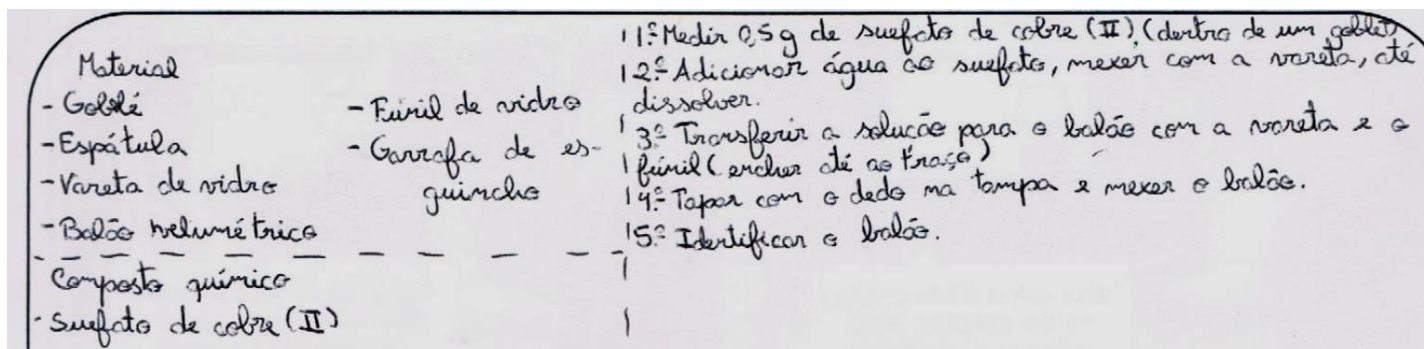 Material
- Goblé
- Espátula
- Vareta de vidro
- Balão volumétrico
- Funil de vidro
- Garrafa de es-
guincho
Composto químico
- Suefato de cobre (II)
1º Medir 0,5 g de suefato de cobre (II) (dentro de um goblet)
2º Adicionar água ao suefato, mexer com a vareta, até
dissolver.
3º Transferir a solução para o balão com a vareta e o
fúnil (encher até ao traço)
4º Tapar com o dedo na tampa e mexer o balão.
5º Identificar o balão.